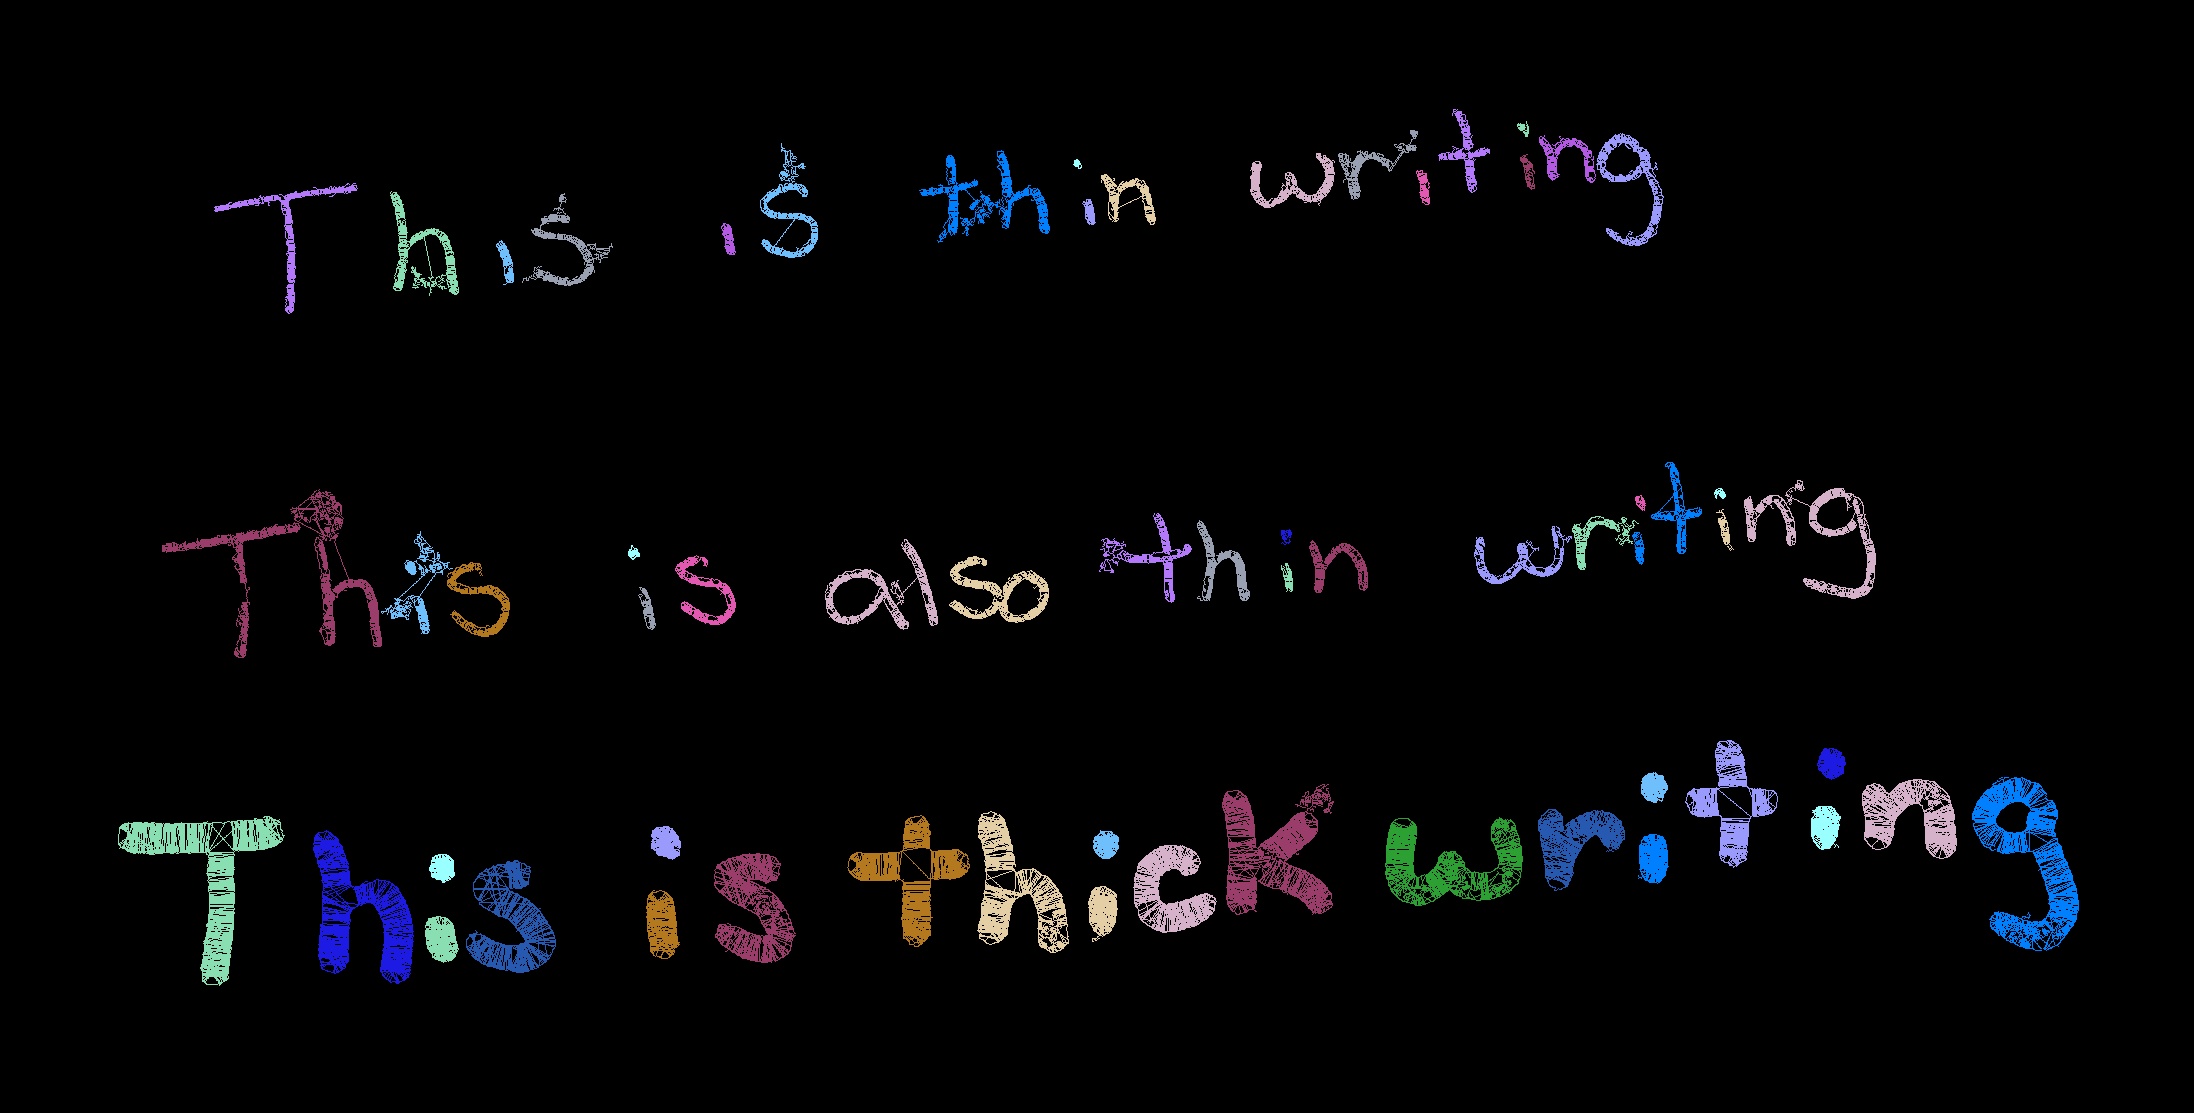 This is thin writing
This is also thin writing
This is thick writing